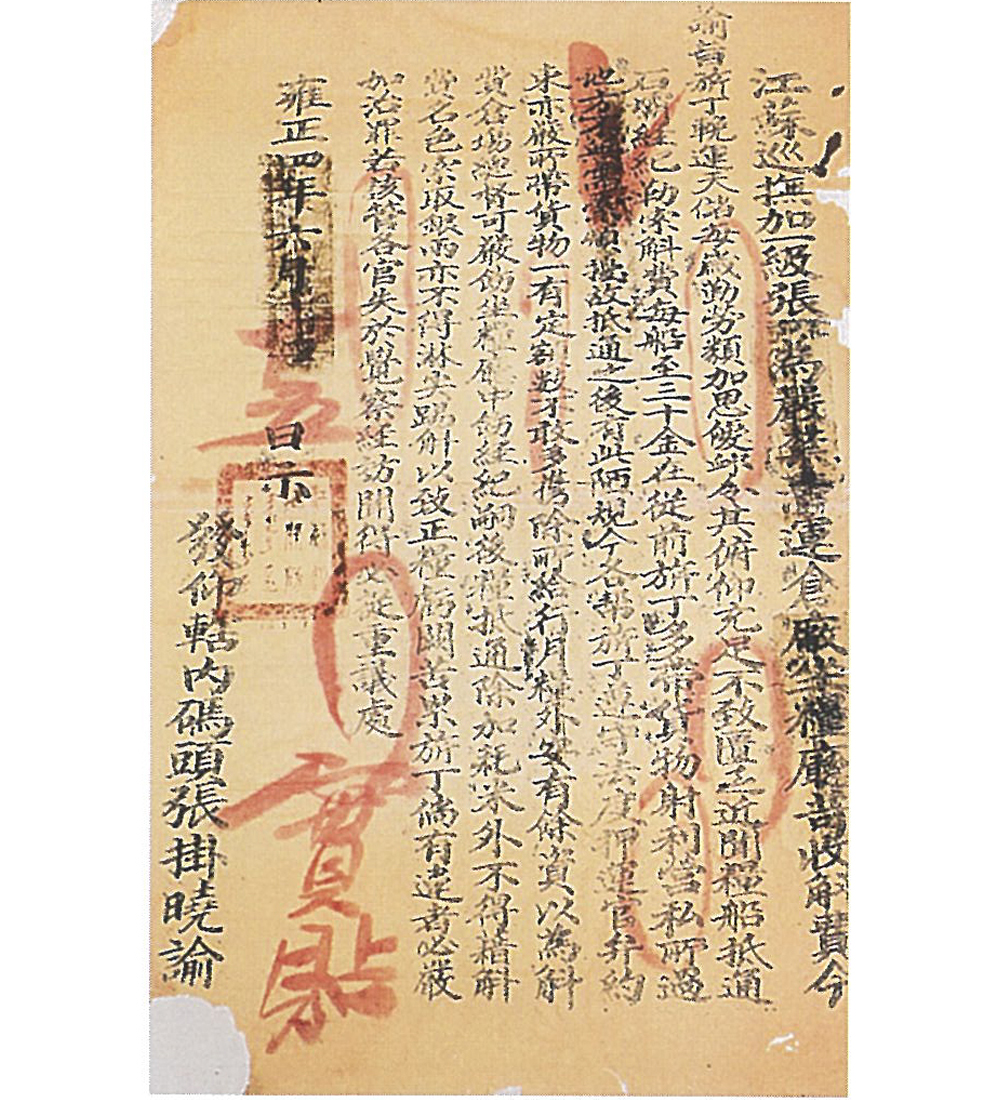 江蘇巡撫加一級張 爲嚴禁 運倉廠坐糧廳 收斛費今
諭旨旂丁輓運天儲每歲勤勞類加恩 令其俯仰充足不致匱乏近聞糧船抵通
石 經紀 索斛費每船至三十金在從前旂丁多帶貨物射利營私所過
地方 故抵通之後有此陋規今各幫旂丁遵守法度押運官弁約
束亦嚴所帶貨物一有定額 敢多攜除所給行月糧外安有餘資以爲斛
費倉場總督可嚴飭坐糧 中飭經紀嗣後糧抵通除加耗米外不得藉斛
費名色索取銀兩亦不得淋尖踢斛以致正糧虧闕苦累旂丁倘有違者必嚴
加治罪若該管各官失於覺察經訪聞得 從重議處
雍正四年六月 日示
五
發仰轄內碼頭張掛曉諭
實貼